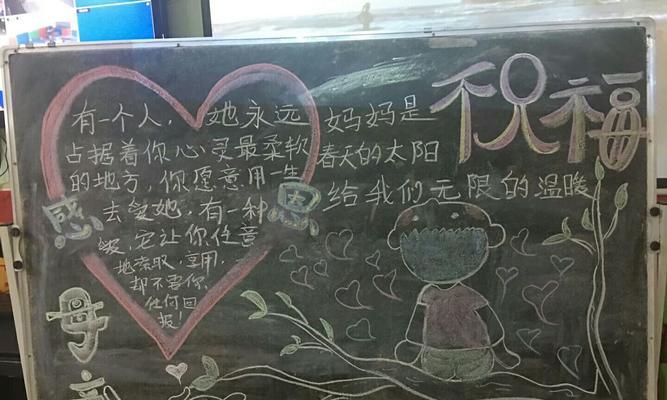 祝福
有一个人，她永远
占据着你心灵最柔软
的地方，你愿意用一生
去爱她，有一种
爱，它让你任意
地索取，享用，
却不要你
任何回
报！
感恩
妈妈是
春天的太阳
给我们无限的温暖
母
亲